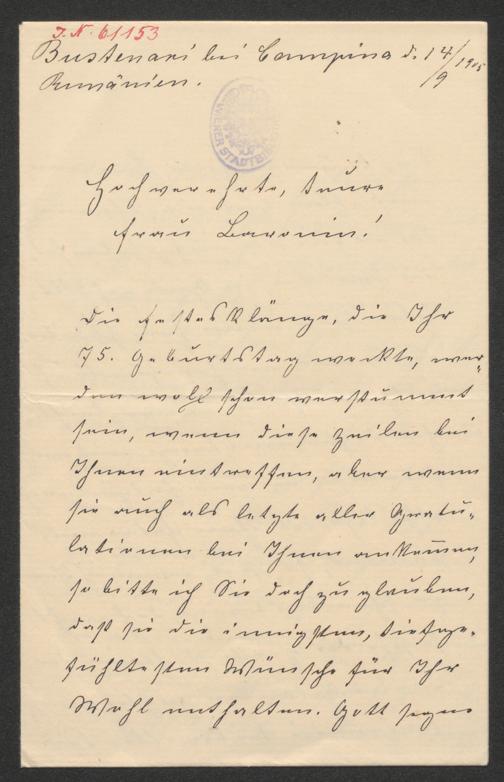 J. N. 61153
Bustenari bei Campina d. 14/9 1905
Rumänien.
WIENER STADTBIBLIOTHEK
Hochverehrte, teure
Frau Baronin!
Die Festesklänge, die Ihr
75. Geburtstag weckte, wer-
den wohl schon verstummt
sein, wenn diese Zeilen bei
Ihnen eintreffen, aber wenn
sie auch als letzte aller Gratu-
lationen bei Ihnen ankom̅en,
so bitte ich Sie doch zu glauben,
daß sie die innigsten, tiefge-
fühltesten Wünsche für Ihr
Wohl enthalten. Gott segne